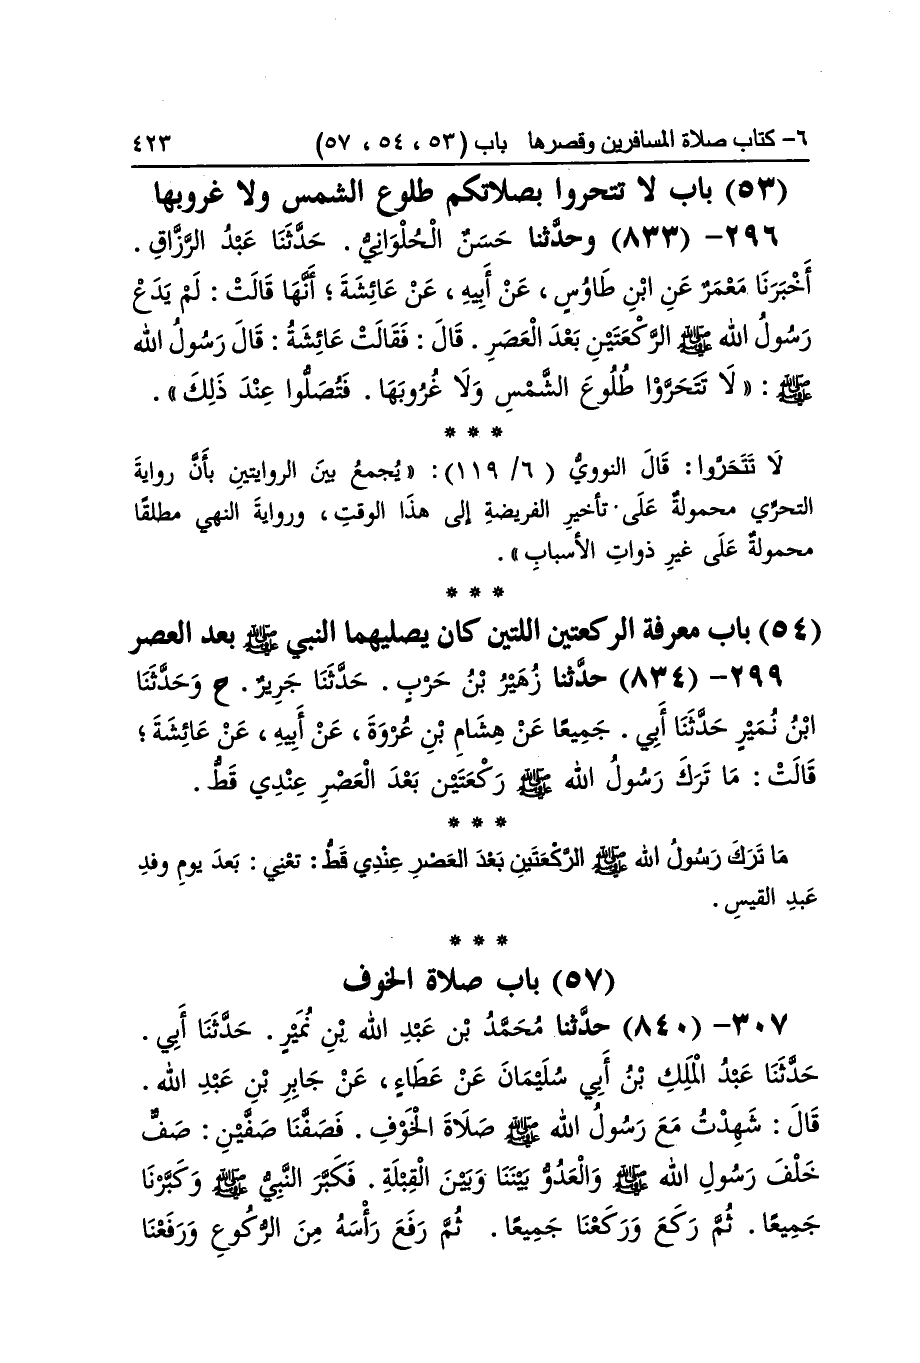 ٦- كتاب صلاة المسافرين وقصرها باب (٥٣ ، ٥٤ ، ٥٧) ٤٢٣
(٥٣) باب لا تتحروا بصلاتكم طلوع الشمس ولا غروبها
٢٩٦- (٨٣٣) وحدَّثنا حَسَنٌ الْحُلْوَانِيُّ . حَدَّثَنَا عَبْدُ الرَّزَّاقِ .
أَخْبَرَنَا مَعْمَرٌ عَنِ ابْنِ طَاوُسٍ ، عَنْ أَبِيهِ ، عَنْ عَائِشَةَ ؛ أَنَّهَا قَالَتْ : لَمْ يَدَعْ
رَسُولُ الله ﷺ الرَّكْعَتَيْنِ بَعْدَ الْعَصَرِ . قَالَ : فَقَالَتْ عَائِشَةُ : قَالَ رَسُولُ الله
ﷺ : « لَا تَتَحَرَّوْا طُلُوعَ الشَّمْسِ وَلَا غُرُوبَهَا . فَتُصَلُّوا عِنْدَ ذَلِكَ » .
* * *
لَا تَتَحَرَّوا : قَالَ النوويُّ ( ٦/ ١١٩) : « يُجمعُ بينَ الروايتينِ بأَنَّ روايةَ
التحرِّي محمولةٌ عَلَى تأخيرِ الفريضةِ إلى هذَا الوقتِ ، وروايةَ النهي مطلقًا
محمولةٌ عَلَى غيرِ ذواتِ الأسبابِ » .
* * *
(٥٤) باب معرفة الركعتين اللتين كان يصليهما النبي ﷺ بعد العصر
٢٩٩- (٨٣٤) حدَّثنا زُهَيْرُ بْنُ حَرْبٍ . حَدَّثَنَا جَرِيرٌ . ح وَحَدَّثَنَا
ابْنُ نُمَيْرٍ حَدَّثَنَا أَبِي . جَمِيعًا عَنْ هِشَامِ بْنِ عُرْوَةَ ، عَنْ أَبِيهِ ، عَنْ عَائِشَةَ ؛
قَالَتْ : مَا تَرَكَ رَسُولُ الله ﷺ رَكْعَتَيْنِ بَعْدَ الْعَصْرِ عِنْدِي قَطُّ .
* * *
مَا تَرَكَ رَسُولُ الله ﷺ الرَّكْعَتَينِ بَعْدَ العَصْرِ عِنْدِي قَطُّ : تعْنِي : بَعدَ يومِ وفدِ
عَبدِ القيسِ .
* * *
(٥٧) باب صلاة الخوف
٣٠٧- (٨٤٠) حدَّثنا مُحَمَّدُ بْن عَبْدِ الله بْنِ نُمَيْرٍ . حَدَّثَنَا أَبِي .
حَدَّثَنَا عَبْدُ الْمَلِكِ بْنُ أَبِي سُلَيْمَانَ عَنْ عَطَاءٍ ، عَنْ جَابِرِ بْنِ عَبْدِ الله .
قَالَ : شَهِدْتُ مَعَ رَسُولُ الله ﷺ صَلَاةَ الْخَوْفِ . فَصَفَّنَا صَفَّيْنِ : صَفٌّ
خَلْفَ رَسُولِ الله ﷺ وَالْعَدُوُّ بَيْنَنَا وَبَيْنَ الْقِبْلَةِ . فَكَبَّرَ النَّبِيُّ ﷺ وَكَبَّرْنَا
جَمِيعًا . ثُمَّ رَكَعَ وَرَكَعْنَا جَمِيعًا . ثُمَّ رَفَعَ رَأْسَهُ مِنَ الرُّكُوعِ وَرَفَعْنَا